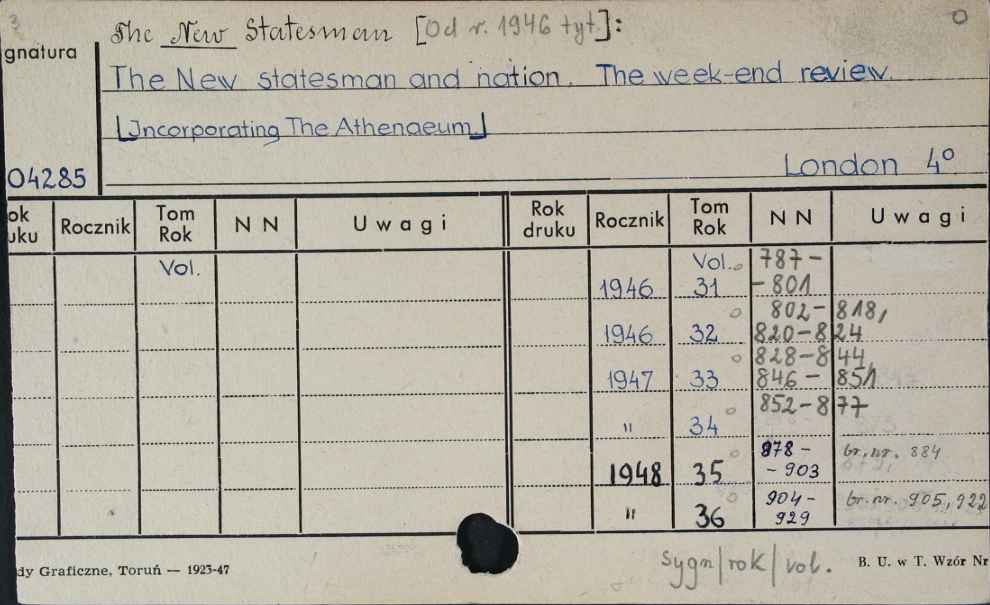 3
The New Statesman [Od r. 1946 tyt.]:
gnatura
The New statesman and nation. The week-end review.
[Incorporating The Athenaeum.]
04285
London 4°
ok uku Rocznik Tom Rok NN Uwagi Rok druku Rocznik Tom Rok NN Uwagi
Vol. Vol. 787-
1946 31 -801
802-818,
1946 32 820-824
828-844,
1947 33 846-851
852-877
" 34
878- br. nr. 884
1948 35 -903
904- br. nr. 905, 922
" 36 929
sygn/rok/vol.
dy Graficzne, Toruń — 1923-47
B. U. w T. Wzór Nr